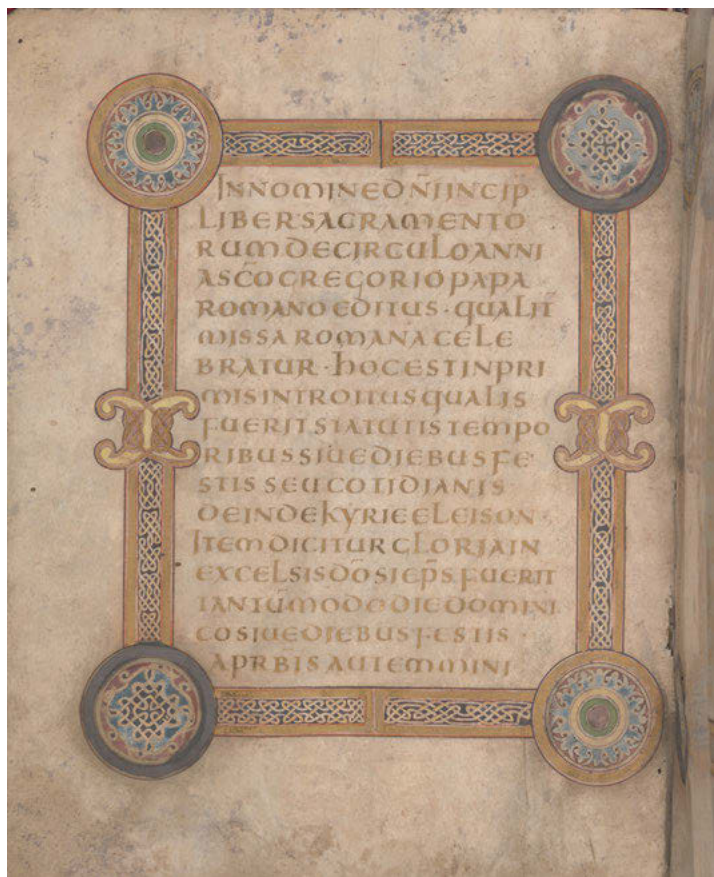 INNOMINEDN̄IINCIP
LIBERSACRAMENTO
RUMDECIRCULOANNI
ASC̄OGREGORIOPAPA
ROMANOEDITUS·QUALIT̄
MISSAROMANACELE
BRATUR·HOCESTINPRI
MISINTROITUSQUALIS
FUERITSTATUTISTEMPO
RIBUSSIUEDIEBUSFE
STISSEUCOTIDIANIS
DEINDEKYRIEELEISON·
ITEMDICITURGLORIAIN
EXCELSISDŌSIEP̄SFUERIT
TANTŪMODODIEDOMINI
COSIUEDIEBUSFESTIS·
APRB̄ISAUTEMMINI